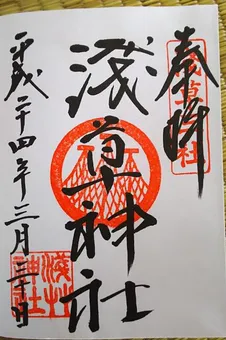 奉拝
淺草神社
淺草神社
平成二十四年三月三十日
淺草
神社